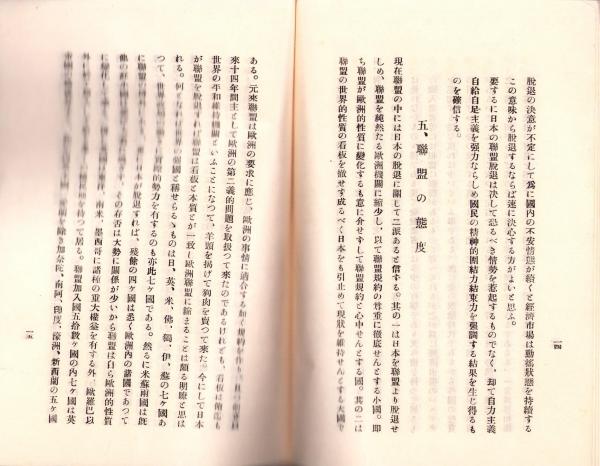 脫退の決意が不定にして爲に國内の不安情態が續くと經濟市場は動搖狀態を持續する
この意味から脫退するならば速に決心する方がよいと思ふ。
要するに日本の聯盟脫退は決して恐るべき情勢を惹起するものでなく、却て自力主義
自給自足主義を强力ならしめ國民の精神的團結力結束力を强調する結果を生じ得るも
のを確信する。
五、聯盟の態度
現在聯盟の中には日本の脫退に關して二派あると信ずる。其の一は日本を聯盟より脫退せ
しめ、聯盟を純然たる歐洲機關に縮少し、以て聯盟規約の尊重に徹底せんとする小國。卽
ち聯盟が歐洲的性質に變化するも意に介せずして聯盟規約と心中せんとする國。其の二は
聯盟の世界的性質の看板を撤せず成るべく日本をも引止めて現狀を維持せんとする大國で
一四
ある。元來聯盟は歐洲の要求に應じ、歐洲の事情に適合する如く規約を作り
來十四年間主として歐洲の第二義的問題を取扱つて來たのであるけれども、看板は
世界の平和維持機關といふことになつて、羊頭を揭げて狗肉を賣つて來た。今にして日本
が聯盟を脫退すれば聯盟は看板と本質とが一致し歐洲聯盟に縮まることは頗る明瞭と思は
れる。何となれば世界の强國と稱せらるゝものは日、英、米、佛、獨、伊、蘇の七ケ國あ
つて、世界 勢力を有するのも亦此七ケ國である。然るに米蘇兩國は旣
に聯盟 日本が脫退すれば、殘餘の四ケ國は悉く歐洲內の諸國であつて
其の存否は大勢に關係が少いから聯盟は自ら歐洲的性質
南米、墨西哥に諸種の重大權益を有する外、歐羅巴以
を持つて居る。聯盟加入國五拾數ケ國の內七ケ國は英
を除き加奈陀、南阿、印度、濠洲、新西蘭の五ケ國
一五